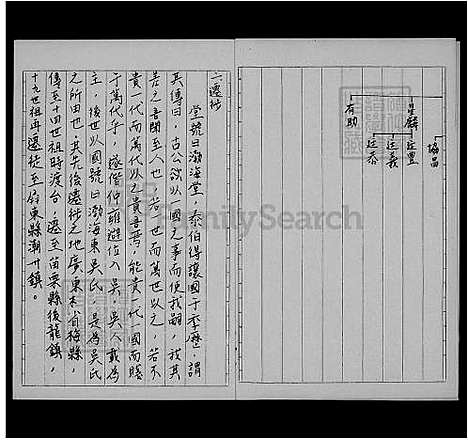 呈麟
有助
廷豐
廷義
廷泰
協昌
二、遷徙
堂號曰渤海堂，泰伯得讓國于季歷，謂
其傳曰，古公欲以一國之事而使我嗣，我其
若之吾聞至人也，若一世而萬世以之，若不
貴一代而萬代以之貴吾焉，能貴一代一國而賤
于萬代乎，遂偕仲雍避位入吳，吳人載為
主，後世以國號曰渤海東吳氏，是為吳氏
之所由也，其先後遷徙之地廣東省梅縣，
傳至十四世祖時渡台，遷至苗栗縣後龍鎮，
十九世祖再遷徙至屏東縣潮州鎮。
FamilySearch